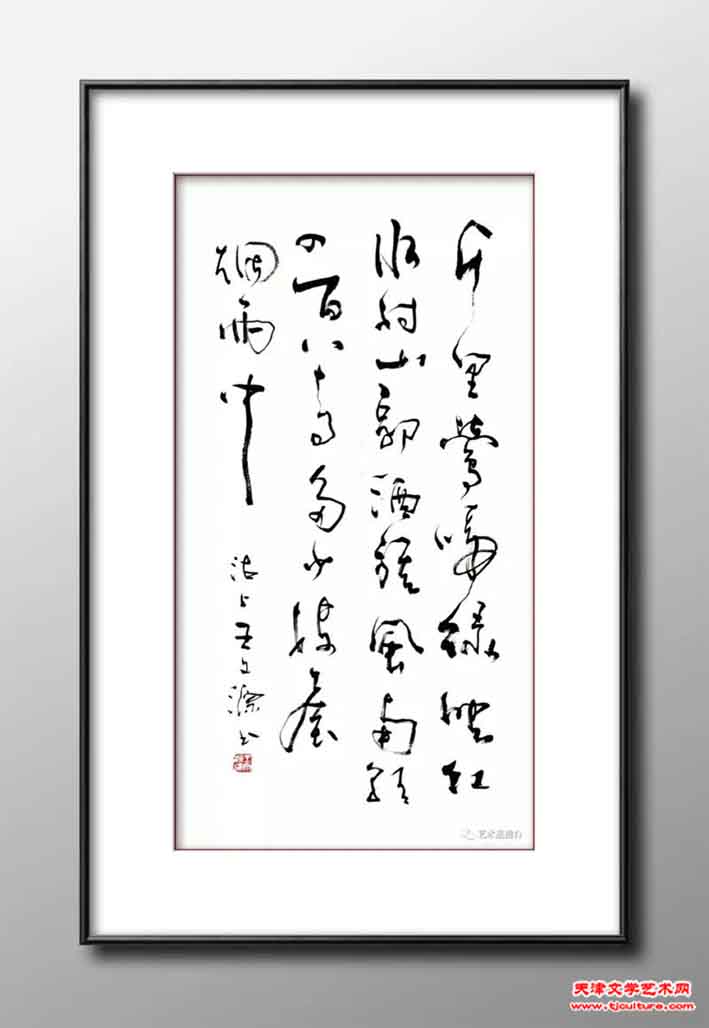 千里鶯啼綠映紅
水村山郭酒旗風南朝
四百八十寺多少樓臺
烟雨中
沽上王书
艺术
天津文学艺术网
www.tjculture.com